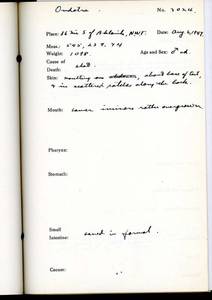 Ondatra No. 3024
Place: 36 mi S of Adelaide, NWT. Date: Aug 6, 1949.
Meas: 545, 239, 74
Weight: 1098. Age and Sex: ♂ ad.
Cause of
Death: shot.
Skin: moulting on abdomen, about base of tail,
& in scattered patches along the back.
Mouth: lower incisors rather overgrown
Pharynx:
Stomach:
Small
Intestine: saved in formal.
Cecum: